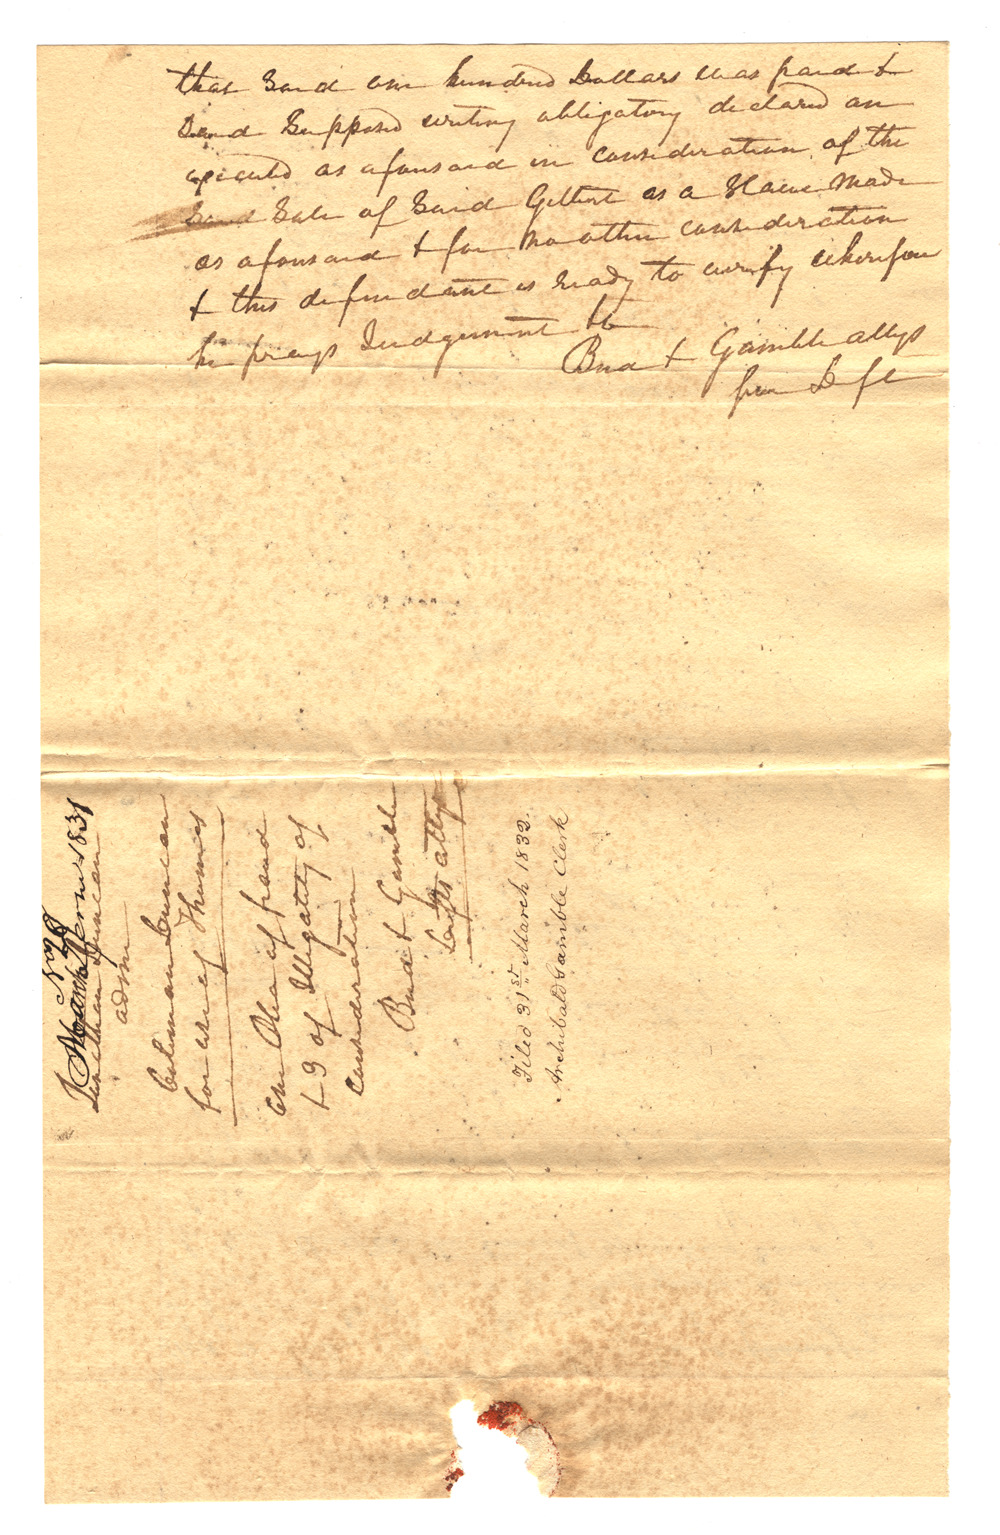 that Said one hundred Dollars was paid &
Said Supposed writing obligatory declared on
executed as aforesaid in consideration of the
Said Sale of Said Gilbert as a Slave made
as aforesaid & for no other consideration
& this defendant is ready to verify wherefore
he prays Judgement &c
Bird & Gamble attys
for Deft
No
March Term 1831
Duncan
admr
vs
Coleman Duncan
for use of Thomas
One Plea of fraud
& 3 of Illegality of
Consideration
Bird & Gamble
Defts attys
Filed 31st March 1832.
Archibald Gamble Clerk